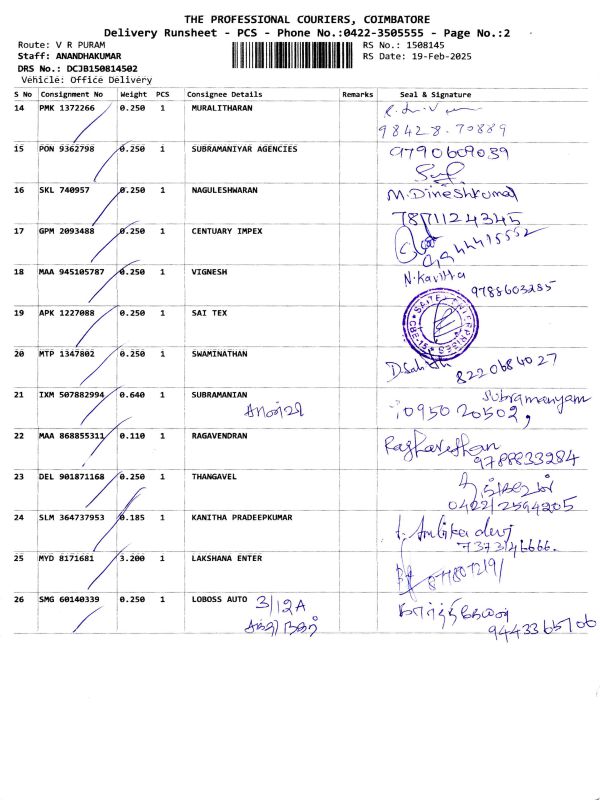 THE PROFESSIONAL COURIERS, COIMBATORE
Delivery Runsheet - PCS - Phone No.:0422-3505555 - Page No.:2
Route: V R PURAM
RS No.: 1508145
Staff: ANANDHAKUMAR
RS Date: 19-Feb-2025
DRS No.: DCJB150814502
Vehicle: Office Delivery
S No Consignment No Weight PCS Consignee Details Remarks Seal & Signature
14 PMK 1372266 0.250 1 MURALITHARAN
98428-70889
15 PON 9362798 0.250 1 SUBRAMANIYAR AGENCIES 9790609039
16 SKL 740957 0.250 1 NAGULESHWARAN M.Dineshkumar
7871124345
17 GPM 2093488 0.250 1 CENTUARY IMPEX
18 MAA 945105787 0.250 1 VIGNESH N.Kavitha
9788603285
19 APK 1227088 0.250 1 SAI TEX
20 MTP 1347802 0.250 1 SWAMINATHAN
8220686027
21 IXM 507882994 0.640 1 SUBRAMANIAN Subramanyam
095020502,
22 MAA 868855311 0.110 1 RAGAVENDRAN
9788833284
23 DEL 901871168 0.250 1 THANGAVEL
0422/2594205
24 SLM 364737953 0.185 1 KANITHA PRADEEPKUMAR
7373146666.
25 MYD 8171681 3.200 1 LAKSHANA ENTER
26 SMG 60140339 0.250 1 LOBOSS AUTO 3/12A
9443365706